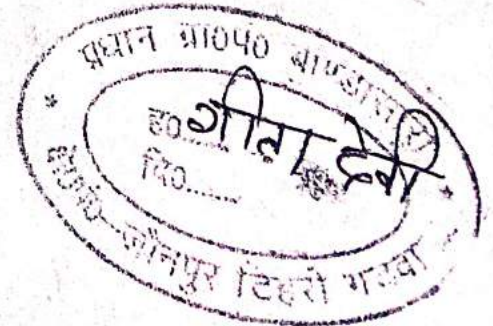 प्रधान ग्रा०पं०
ह०........
गीता देवी
दि०.......
क्षे०पं०-जौनपुर टिहरी गढ़वा